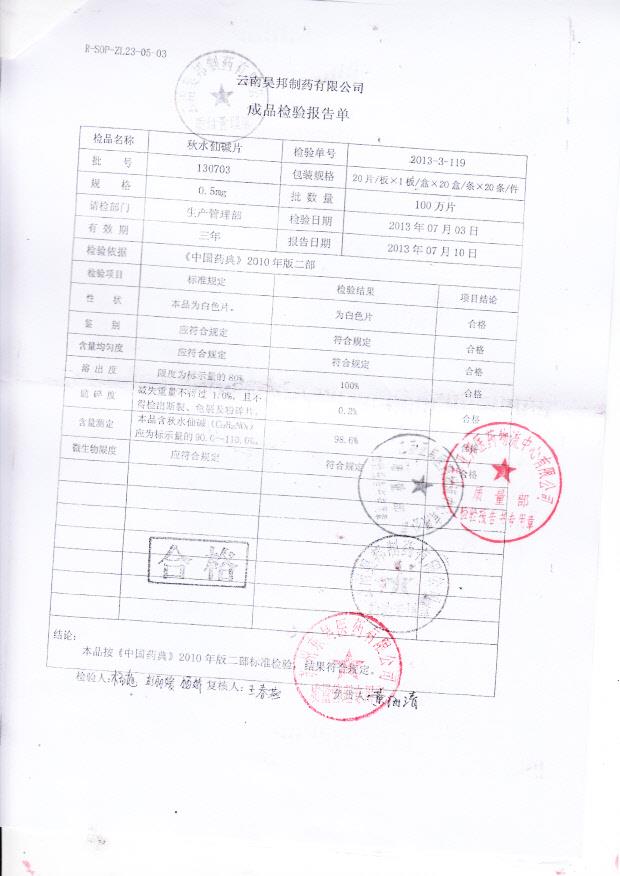 R-SOP-ZL23-05-03
云南昊邦制药有限公司
成品检验报告单
检品名称 秋水仙碱片 检验单号 2013-3-119
批 号 130703 包装规格 20片/板×1板/盒×20盒/条×20条/件
规 格 0.5mg 批 数 量 100万片
请检部门 生产管理部 检验日期 2013年07月03日
有 效 期 三年 报告日期 2013年07月10日
检验依据 《中国药典》2010年版二部
检验项目 标准规定 检验结果 项目结论
性 状 本品为白色片。 为白色片 合格
鉴 别 应符合规定 符合规定 合格
含量均匀度 应符合规定 符合规定 合格
溶 出 度 限度为标示量的80% 100% 合格
脆 碎 度 减失重量不得过1.0%，且不得检出断裂、龟裂及粉碎片。 0.2% 合格
含量测定 本品含秋水仙碱
应为标示量的90.0～110.0%。 98.6% 合格
微生物限度 应符合规定 符合规定 合格
医药物流中心有限公司
质量部
检验报告书专用章
合格
结论：
本品按《中国药典》2010年版二部标准检验，结果符合规定。
检验人： 复核人：王春燕 负责人：